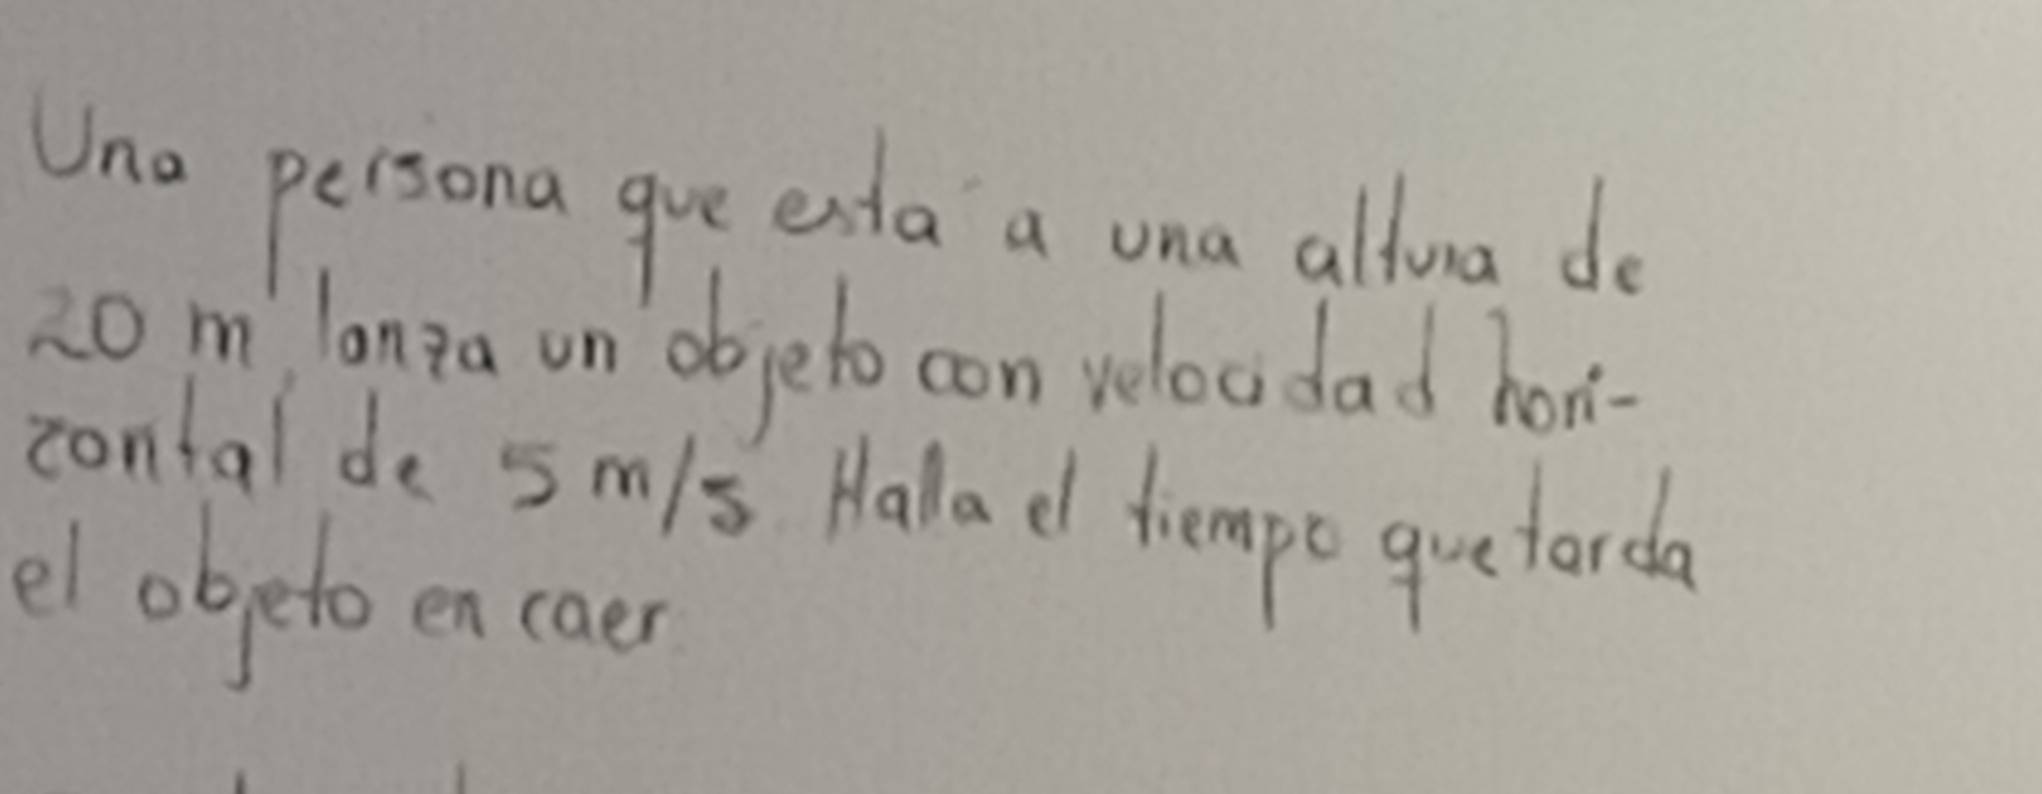 Una persona que está a una altura de
20 m, lanza un objeto con velocidad hori-
zontal de 5 m/s. Halla el tiempo que tarda
el objeto en caer.